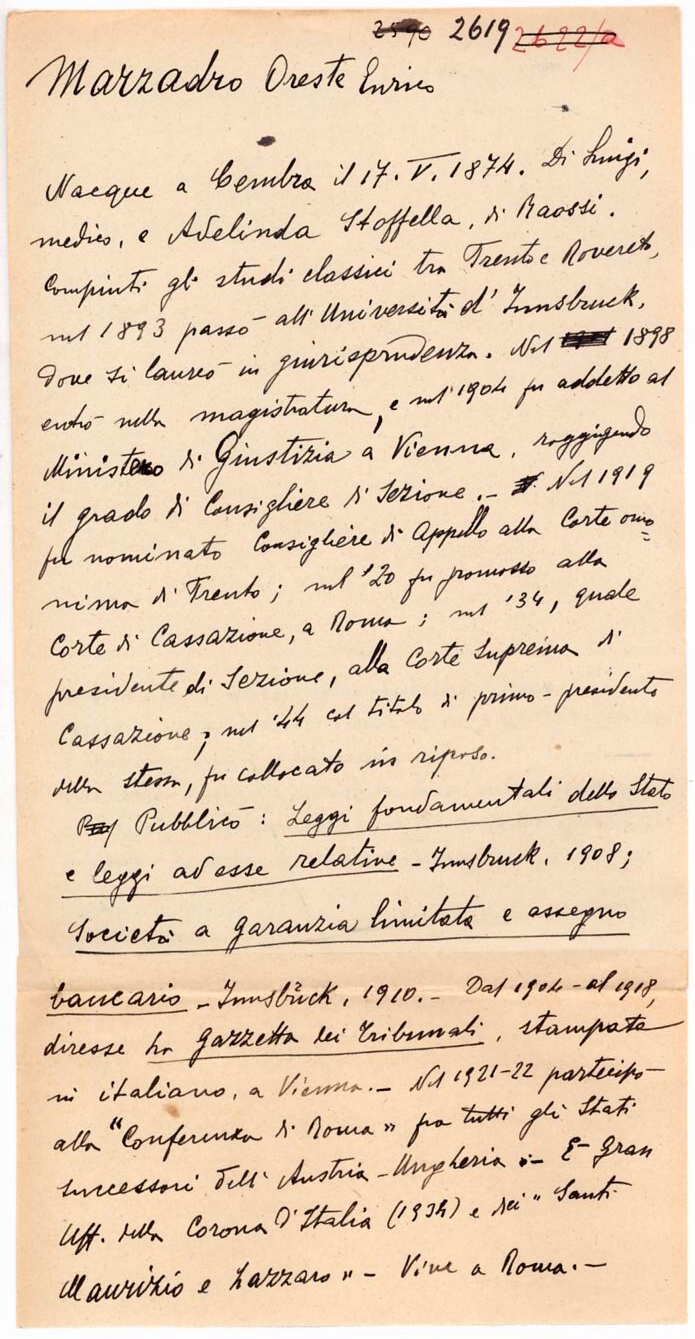 2590 2619 2622/a
Marzadro Oreste Enrico
Nacque a Cembra il 17. V. 1874. Di Luigi,
medico, e Adelinda Stoffella, di Raossi.
Compiuti gli studi classici tra Trento e Rovereto,
nel 1893 passò all'Università d'Innsbruck,
dove si laureò in giurisprudenza. Nel 1898
entrò nella magistratura, e nel 1904 fu addetto al
Ministero di Giustizia a Vienna, raggiungendo
il grado di Consigliere di Sezione. - Nel 1919
fu nominato Consigliere di Appello alla Corte omo=
nima di Trento; nel '20 fu promosso alla
Corte di Cassazione, a Roma; nel '34, quale
presidente di Sezione, alla Corte Suprema di
Cassazione; nel '44 col titolo di primo-presidente
della stessa, fu collocato in riposo.
Pubblicò: Leggi fondamentali dello Stato
e leggi ad esse relative - Innsbruck, 1908;
Società a garanzia limitata e assegno
bancario - Innsbück, 1910. - Dal 1904 - al 1918,
diresse la Gazzetta dei Tribunali, stampata
in italiano, a Vienna. - Nel 1921-22 partecipò
alla "Conferenza di Roma" fra tutti gli Stati
successori dell'Austria-Ungheria. - È Gran
Uff. della Corona d'Italia (1934) e dei "Santi
Maurizio e Lazzaro" - Vive a Roma. -